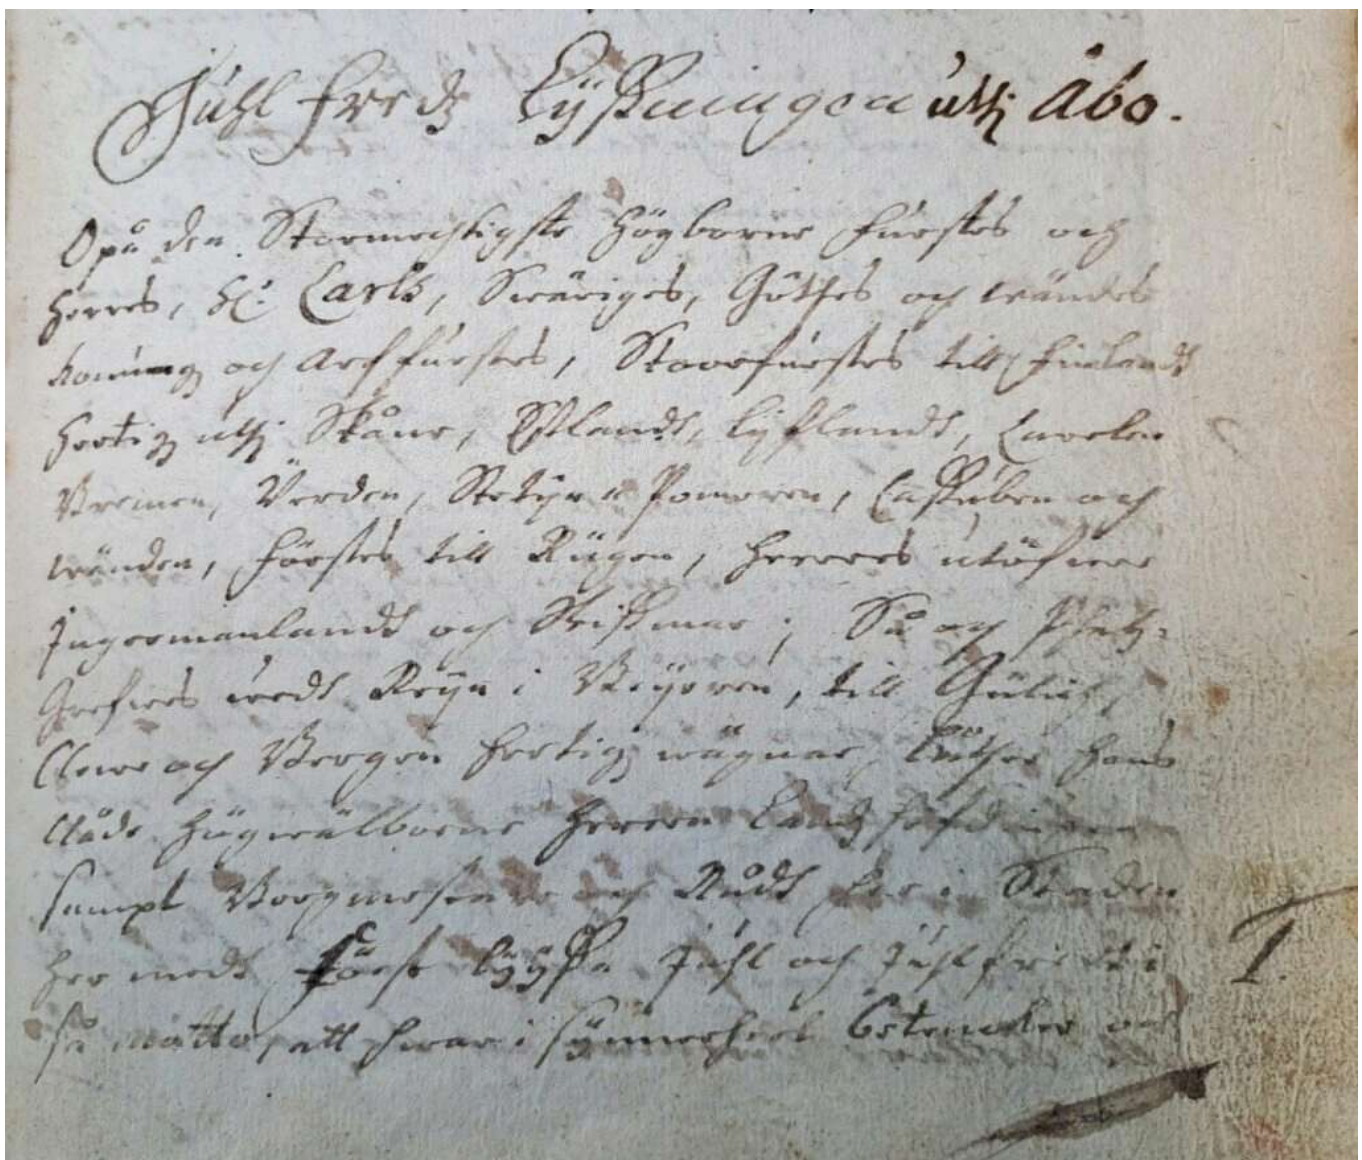 Juhl Fredz Lyßningen uthj Åbo.
Opå den Stormechtigste Högborne Furstes och
Herres, H: Carls, Sweriges, Göthes och Wändes
Konung och Arffurstes, Stoorfurstes till Finlandt
Hertig uthj Skåne, Estlandt, Lyflandt, Carelen
Bremen, Verden, Stetijn Pomeren, Caßuben och
Wänden, Förstes till Rügen, Herres utöfver
Ingermanlandt och Wißmar; Så och Pfaltz-
Grefwes widt Reyn i Beyeren, till Gülich,
Clewe och Bergen Hertig wägnar, låther Hans
Nåde Högwälborne Herren Landzhöfdingen
sampt Borgmestare och Rådt her i Staden
her medt lyyßa Juhl och Juhlfredt i
så matto, att hwar i synnerheet betencker och
1.